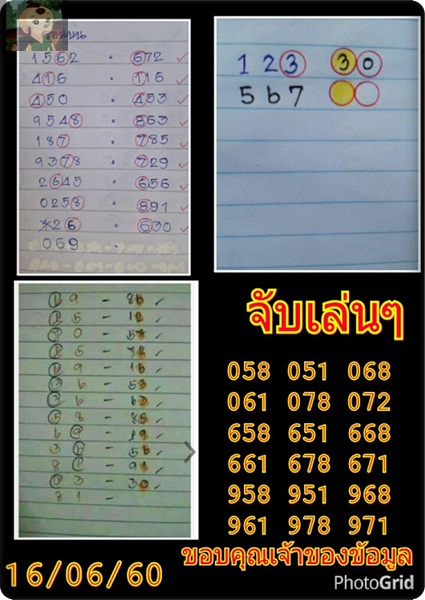 1562 . 672 ✓
416 . 116 ✓
450 . 453 ✓
9548 . 863 ✓
187 . 785 ✓
9378 . 729 ✓
2645 . 656 ✓
0258 . 891 ✓
*26 . 630 ✓
069 .
1 2 3 3 0
5 6 7
19 - 86 ✓
25 - 12 ✓
30 - 57 ✓
19 - 16 ✓
36 - 53 ✓
36 - 63 ✓
58 - 85 ✓
69 - 89 ✓
38 - 56 ✓
81 - 91 ✓
03 - 30 ✓
81 -
จับเล่นๆ
058 051 068
061 078 072
658 651 668
661 678 671
958 951 968
961 978 971
ขอบคุณเจ้าของข้อมูล
16/06/60
PhotoGrid